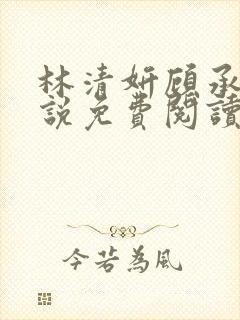 林清妍顾承
說免費閱讀
今若為風